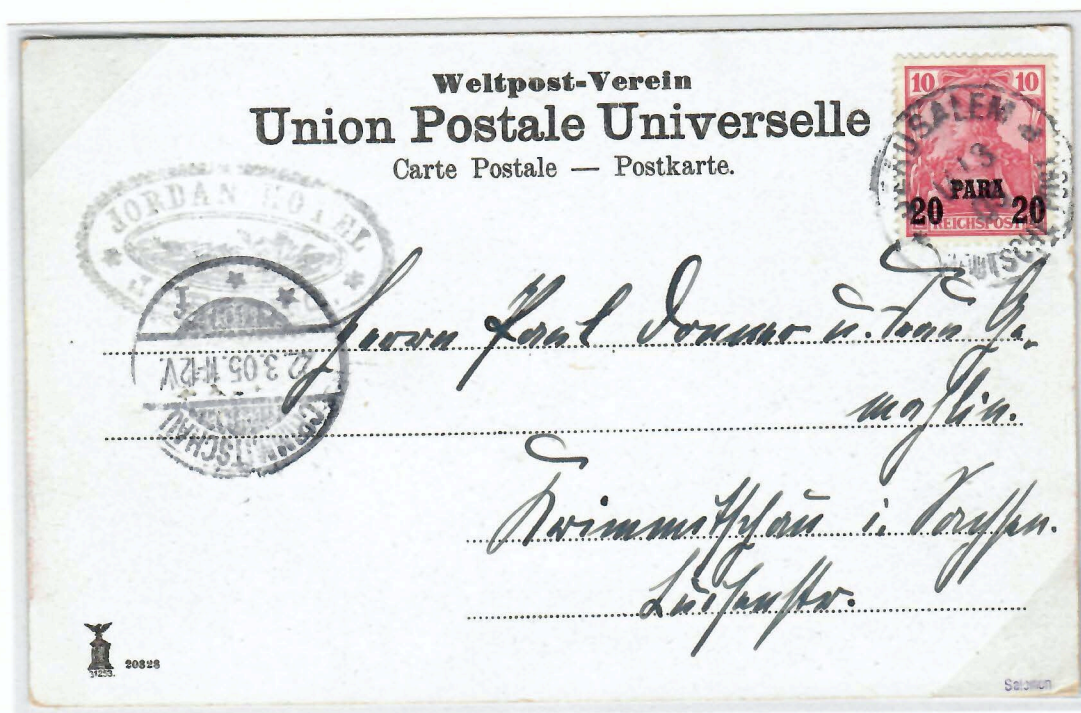 Weltpost-Verein
Union Postale Universelle
Carte Postale — Postkarte.
10 10
PARA
20 20
REICHSPOST
JERUSALEM
JORDAN HOTEL
22.3.05.11-12V.
Herrn Paul u. Frau Ge-
mahlin.
Krimmitschau i. Sachsen.
Luisenstr.
31253.
20328
Salomon